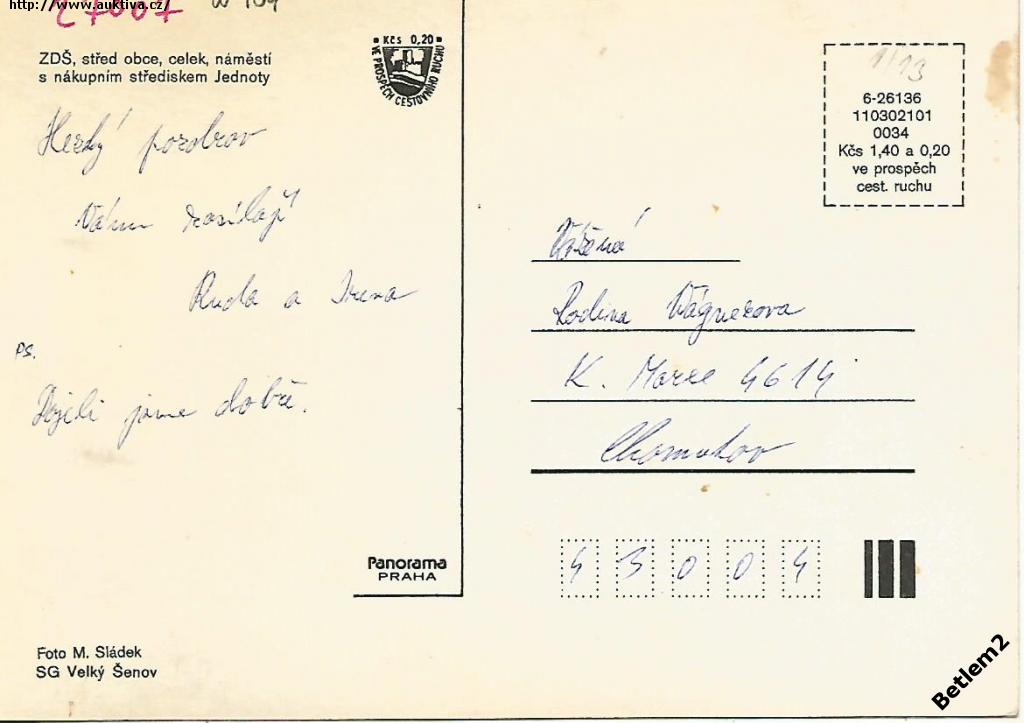 http://www.auktiva.cz/
27007
W 109
ZDŠ, střed obce, celek, náměstí
s nákupním střediskem Jednoty
Kčs 0,20
VE PROSPĚCH CESTOVNÍHO RUCHU
Hezký pozdrov
Vám zasílají
Ruda a Irena
PS.
Dojeli jsme dobře.
Panorama
PRAHA
Foto M. Sládek
SG Velký Šenov
1/13
6-26136
110302101
0034
Kčs 1,40 a 0,20
ve prospěch
cest. ruchu
Vážená
Rodina Vágnerova
K. Marxe 4614
Chomutov
43004
Betlem2